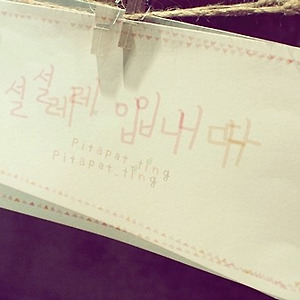 설설레레, 입입니다
Pitapat.ting
Pitapat.ting